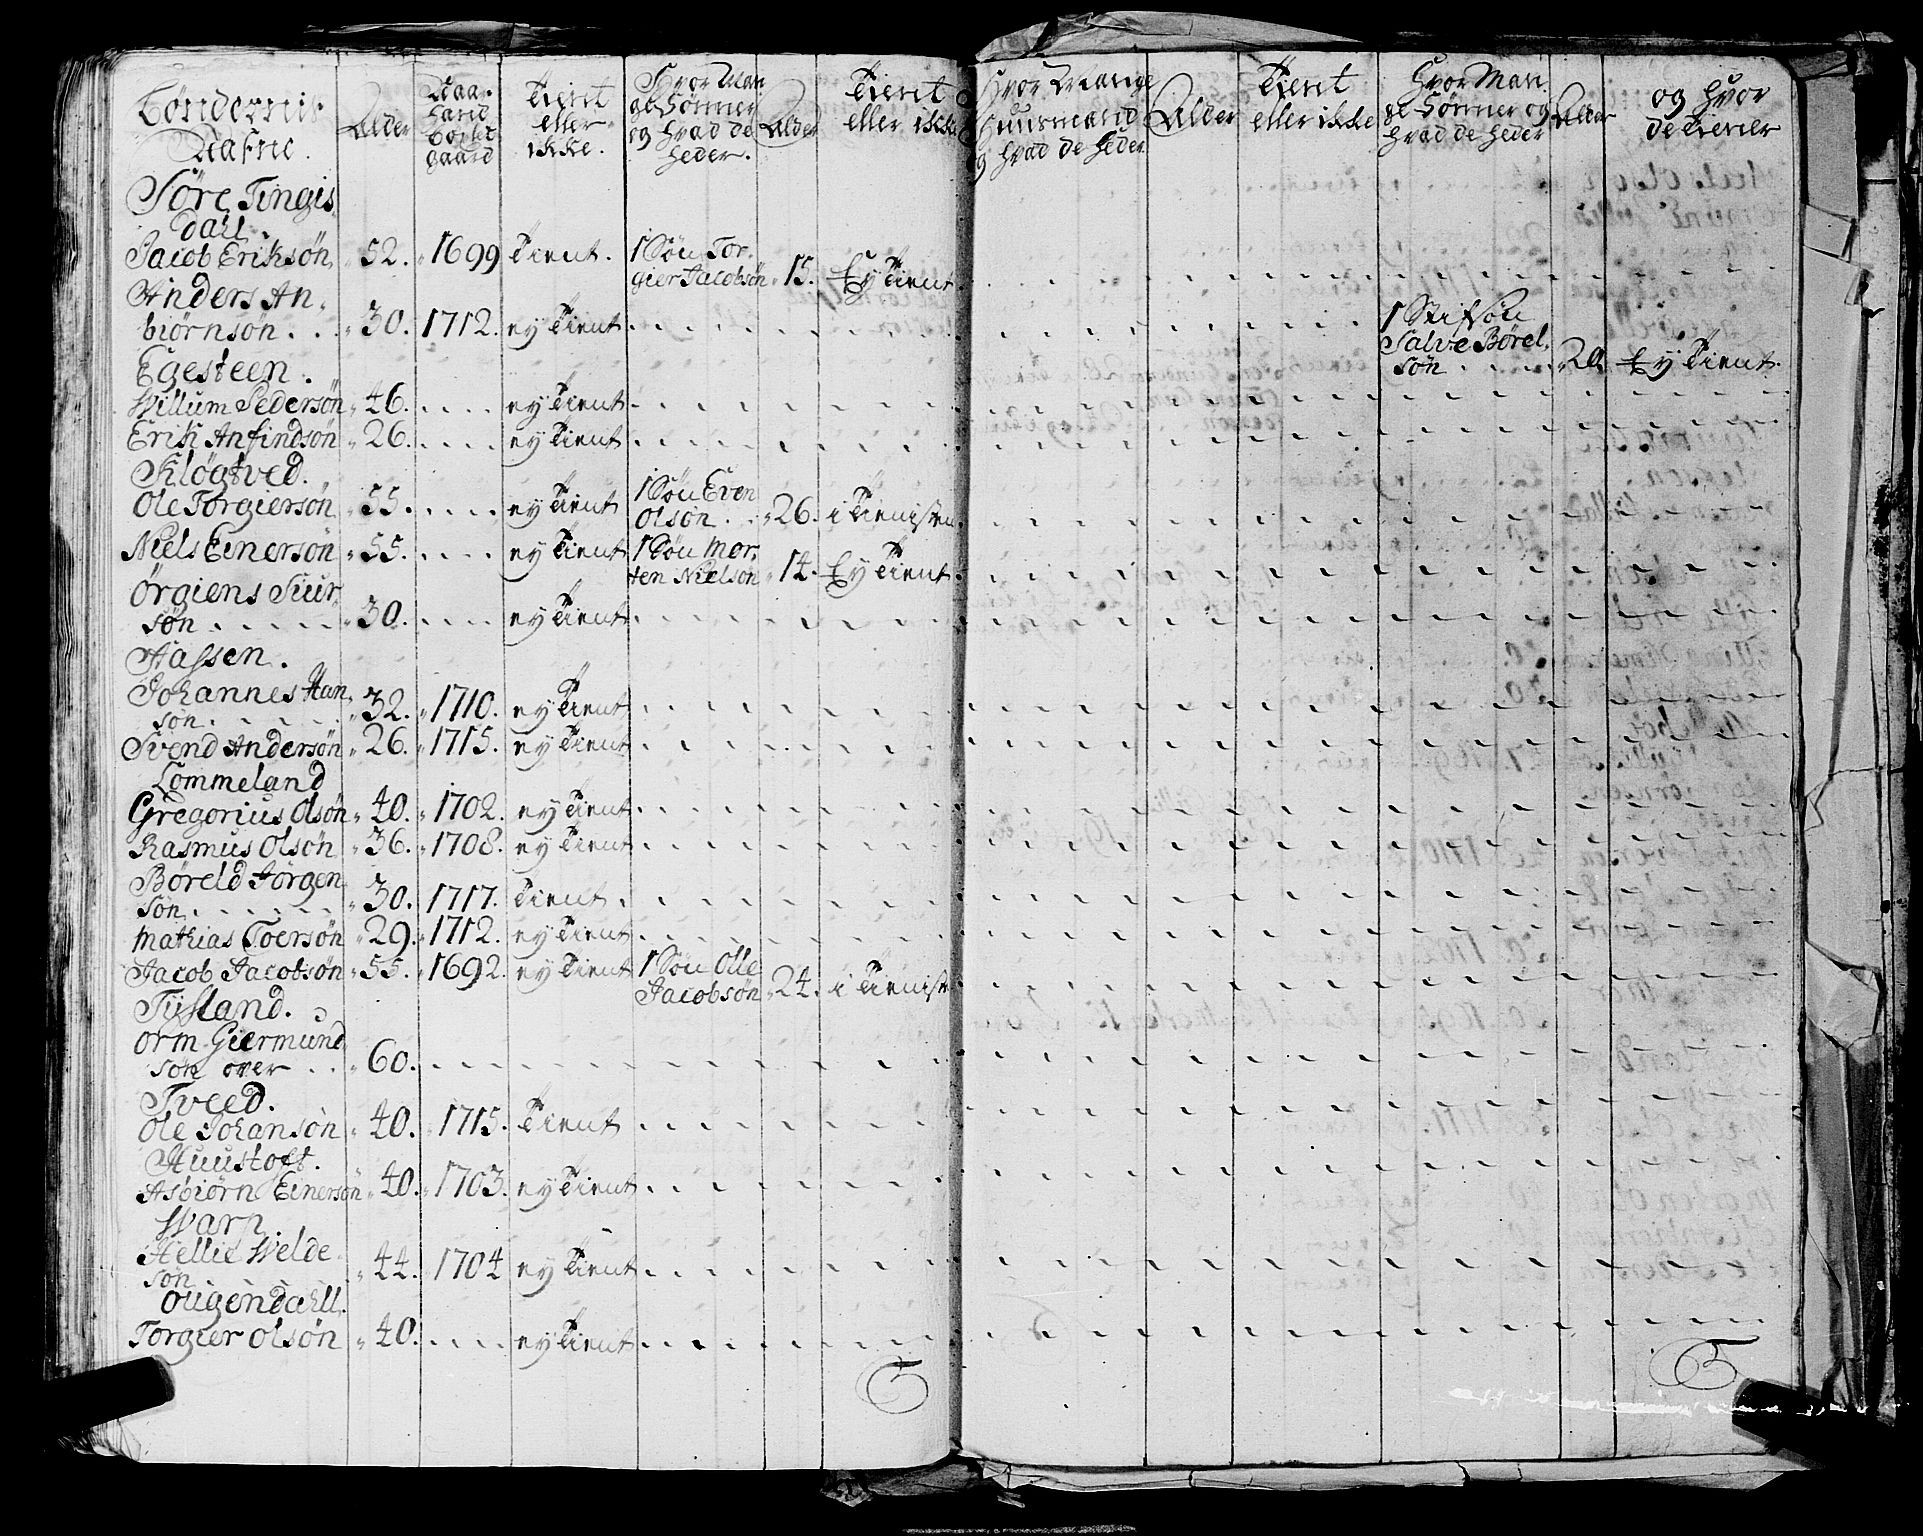 Bøndernis Nafne. Alder Naar hand boxlet gaard Tient eller ikke. Hvor Mange Sønner og hvad de heder. Alder Tient eller ikke Hvor Mange Huusmænd og hvad de heder Alder Tient eller ikke Hvor Mange Sønner og hvad de heder Alder og hvor de tiener
Søre Tingis
dahl
Jacob Eriksøn 52. 1699 Tient. 1 Søn Tor-
gier Jacobsøn 15. Ey Tient
Anders An-
biørnsøn . . 30. 1712. ey Tient 1 Stifsøn
Salve Børel
søn . . . . 20. Ey Tient.
Egesteen.
Willum Pedersøn 46. . . . . ey Tient
Erik Anfindsøn 26. . . . . ey Tient
Kløgtved.
Ole Torgiersøn 55. . . . . ey Tient 1 Søn Even
Olsøn . . 26. i Tienisten
Niels Einersøn 55. . . . . ey Tient 1 Søn Mor-
ten Nielsøn 14. Ey Tient
Ørgiens Siur
søn . . . . . 30. . . . . ey Tient
Aassen.
Johannes Han
søn . . . . . 32. 1710. ey Tient
Svend Andersøn 26. 1715. ey Tient
Lommeland
Gregorius Olsøn 40. 1702. ey Tient
Rasmus Olsøn 36. 1708. ey Tient
Børeld Jørgen
søn . . . . . 30. 1717. Tient .
Mathias Toersøn 29. 1712. ey Tient
Jacob Jacobsøn 55. 1692. ey Tient 1 Søn Olle
Jacobsøn 24. i Tienist
Tysland.
Orm Giermund
søn over . . 60.
Tveed.
Ole Johansøn 40. 1715. Tient
Huustoft.
Asbiørn Einersøn 40. 1703. ey Tient
Warp.
Hellie Welde
søn 44. 1704 ey Tient
Ougendahll.
Torgier Olsøn 40. . . . . ey Tient